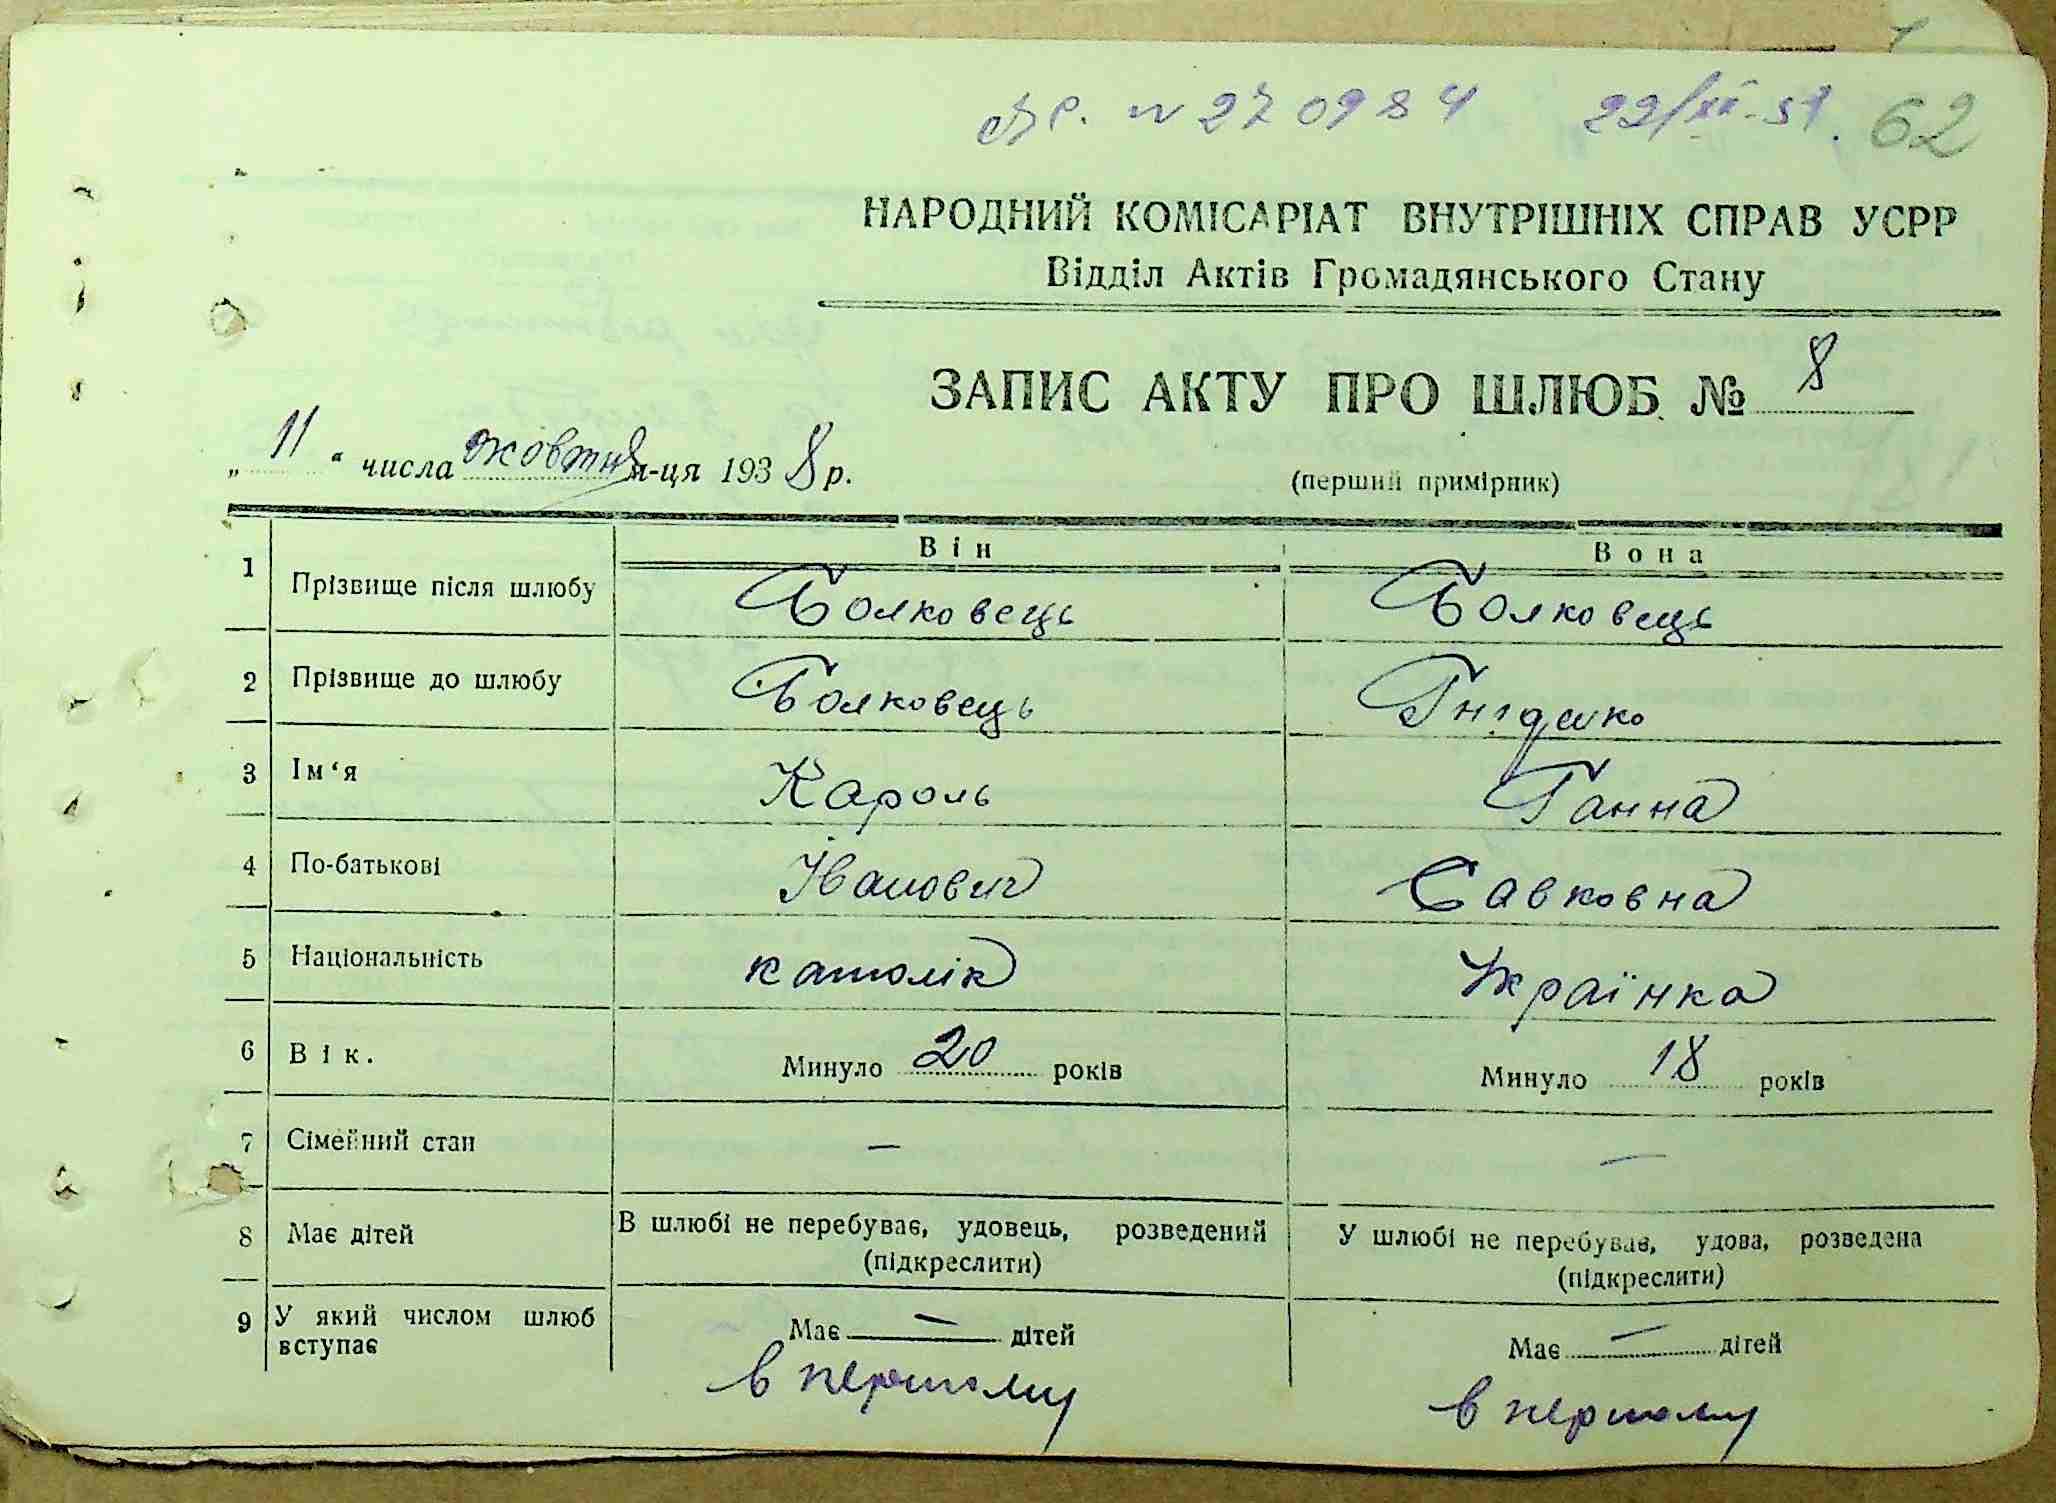 № 270984 22/XII-51. 62
НАРОДНИЙ КОМІСАРІАТ ВНУТРІШНІХ СПРАВ УСРР
Відділ Актів Громадянського Стану
ЗАПИС АКТУ ПРО ШЛЮБ № 8
„ 11 “ числа жовтня м-ця 1938 р.
(перший примірник)
Він Вона
1 Прізвище після шлюбу Болковець Болковець
2 Прізвище до шлюбу Болковець Гніденко
3 Ім‘я Кароль Ганна
4 По-батькові Іванович Савковна
5 Національність католік Українка
6 Вік. Минуло 20 років Минуло 18 років
7 Сімейний стан — —
8 Має дітей В шлюбі не перебуває, удовець, розведений У шлюбі не перебуває, удова, розведена
(підкреслити) (підкреслити)
9 У який числом шлюб вступає Має — дітей Має — дітей
в першому в першому